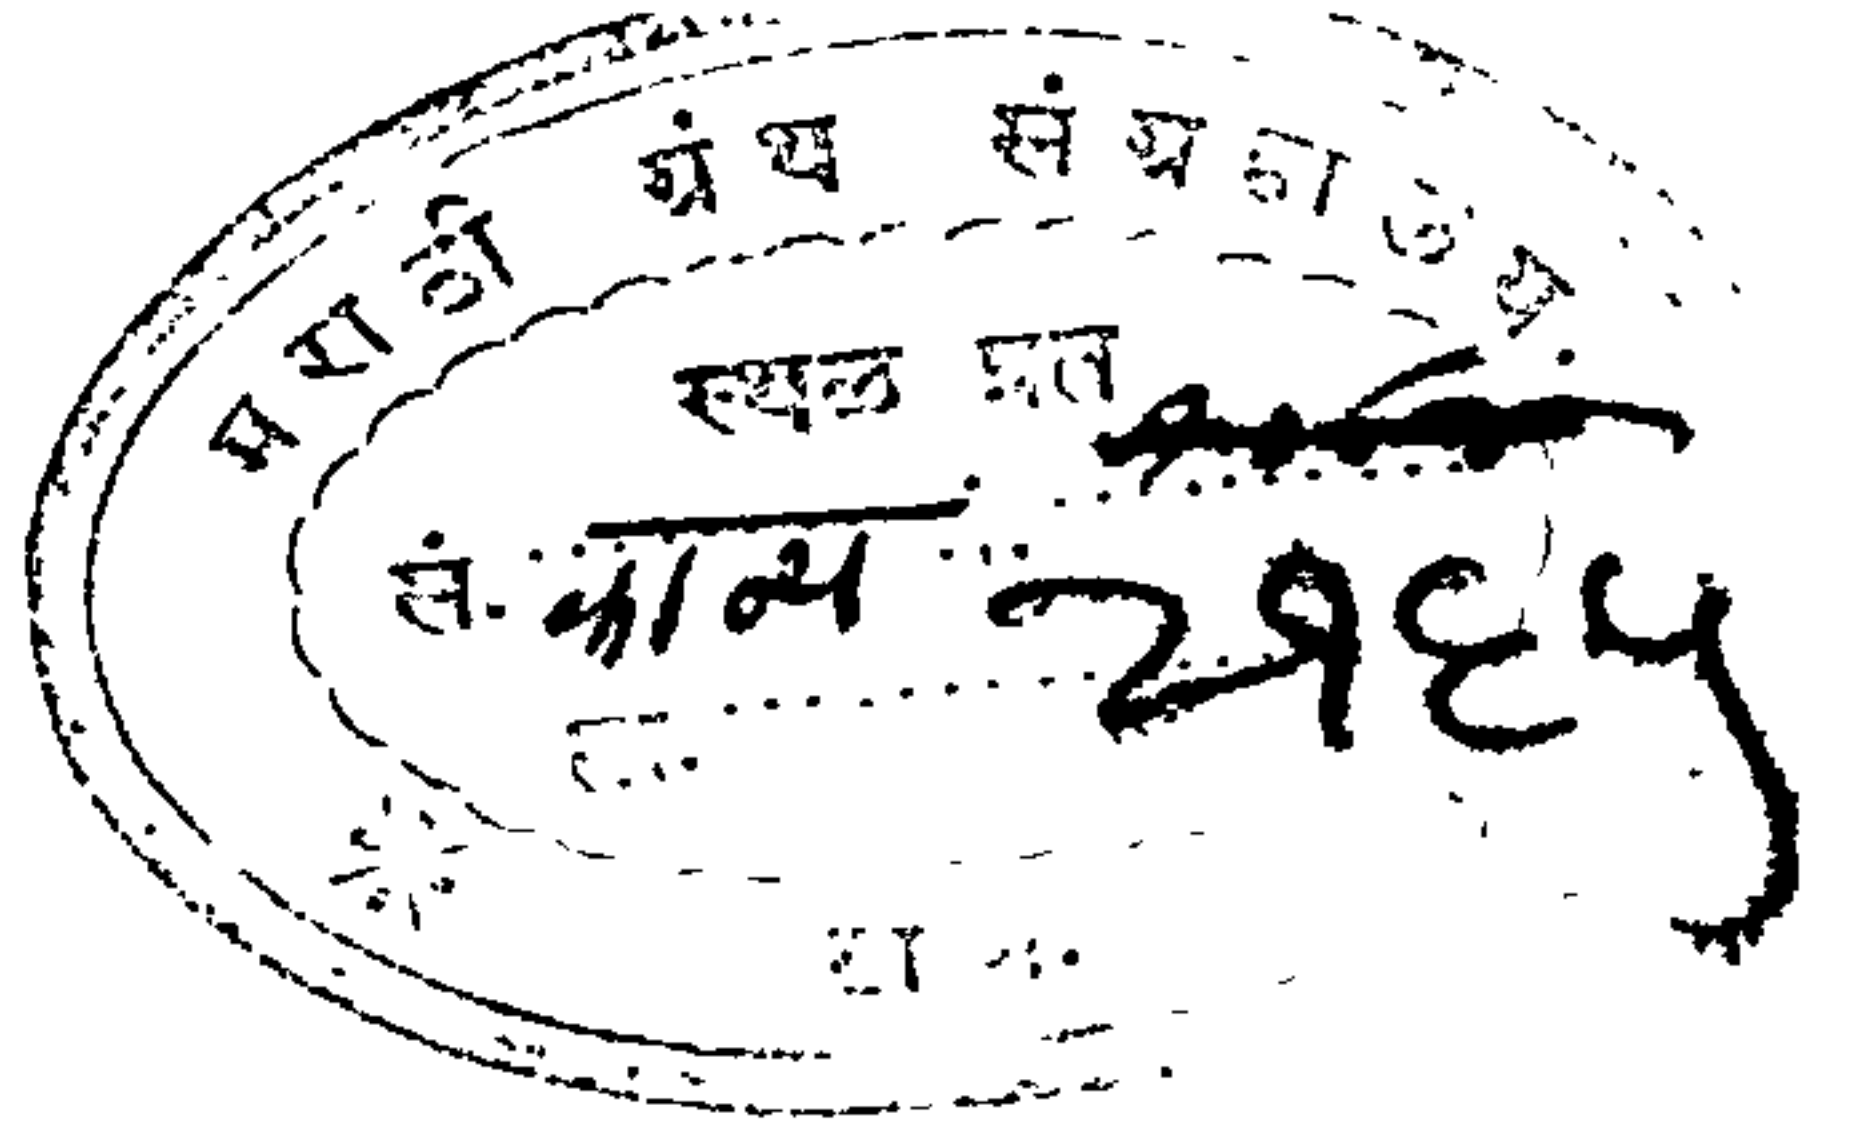 मराठी ग्रंथ संग्रहालय
स्थळ प्रत
सं. काव्य २१६५